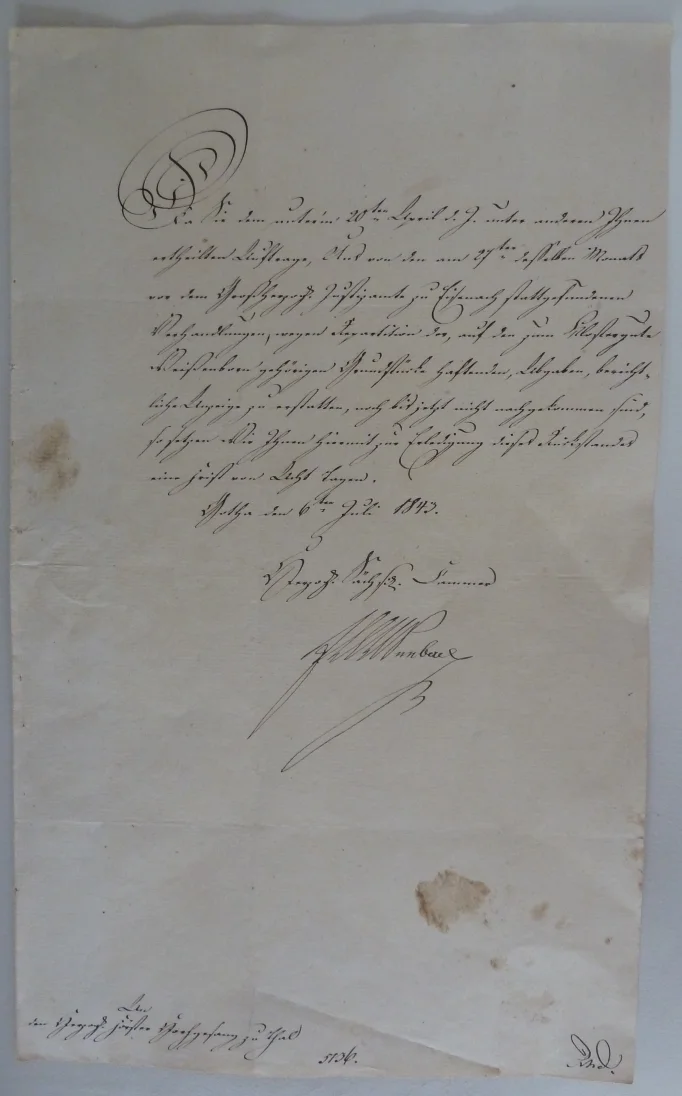 Da Sie dem unterm 20ten April d. J. unter anderen Ihnen
ertheilten Auftrage, Uns von den am 27ten desselben Monats
vor dem Großherzogl. Justizamte zu Eisenach stattgefundenen
Verhandlungen, wegen Repartition der, auf den zum Klostergute
Weißenborn gehörigen Grundstücke haftenden, Abgaben, bericht-
liche Anzeige zu erstatten, noch bis jetzt nicht nachgekommen sind,
so setzen Wir Ihnen hiermit zur Erledigung dieses Rückstandes
eine Frist von Acht Tagen.
Gotha den 6ten Juli 1843.
Herzogl. Sächs. Cammer
An
den Herzogl. Förster zu Thal
5136.